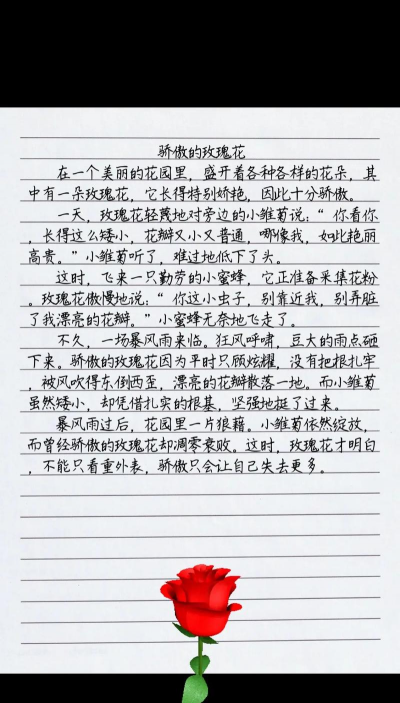 骄傲的玫瑰花
在一个美丽的花园里，盛开着各种各样的花朵，其
中有一朵玫瑰花，它长得特别娇艳，因此十分骄傲。
一天，玫瑰花轻蔑地对旁边的小雏菊说：“你看你
，长得这么矮小，花瓣又小又普通，哪像我，如此艳丽
高贵。”小雏菊听了，难过地低下了头。
这时，飞来一只勤劳的小蜜蜂，它正准备采集花粉
。玫瑰花傲慢地说：“你这小虫子，别靠近我，别弄脏
了我漂亮的花瓣。”小蜜蜂无奈地飞走了。
不久，一场暴风雨来临。狂风呼啸，豆大的雨点砸
下来。骄傲的玫瑰花因为平时只顾炫耀，没有把根扎牢
，被风吹得东倒西歪，漂亮的花瓣散落一地。而小雏菊
虽然矮小，却凭借扎实的根基，坚强地挺了过来。
暴风雨过后，花园里一片狼藉。小雏菊依然绽放，
而曾经骄傲的玫瑰花却凋零衰败。这时，玫瑰花才明白
，不能只看重外表，骄傲只会让自己失去更多。